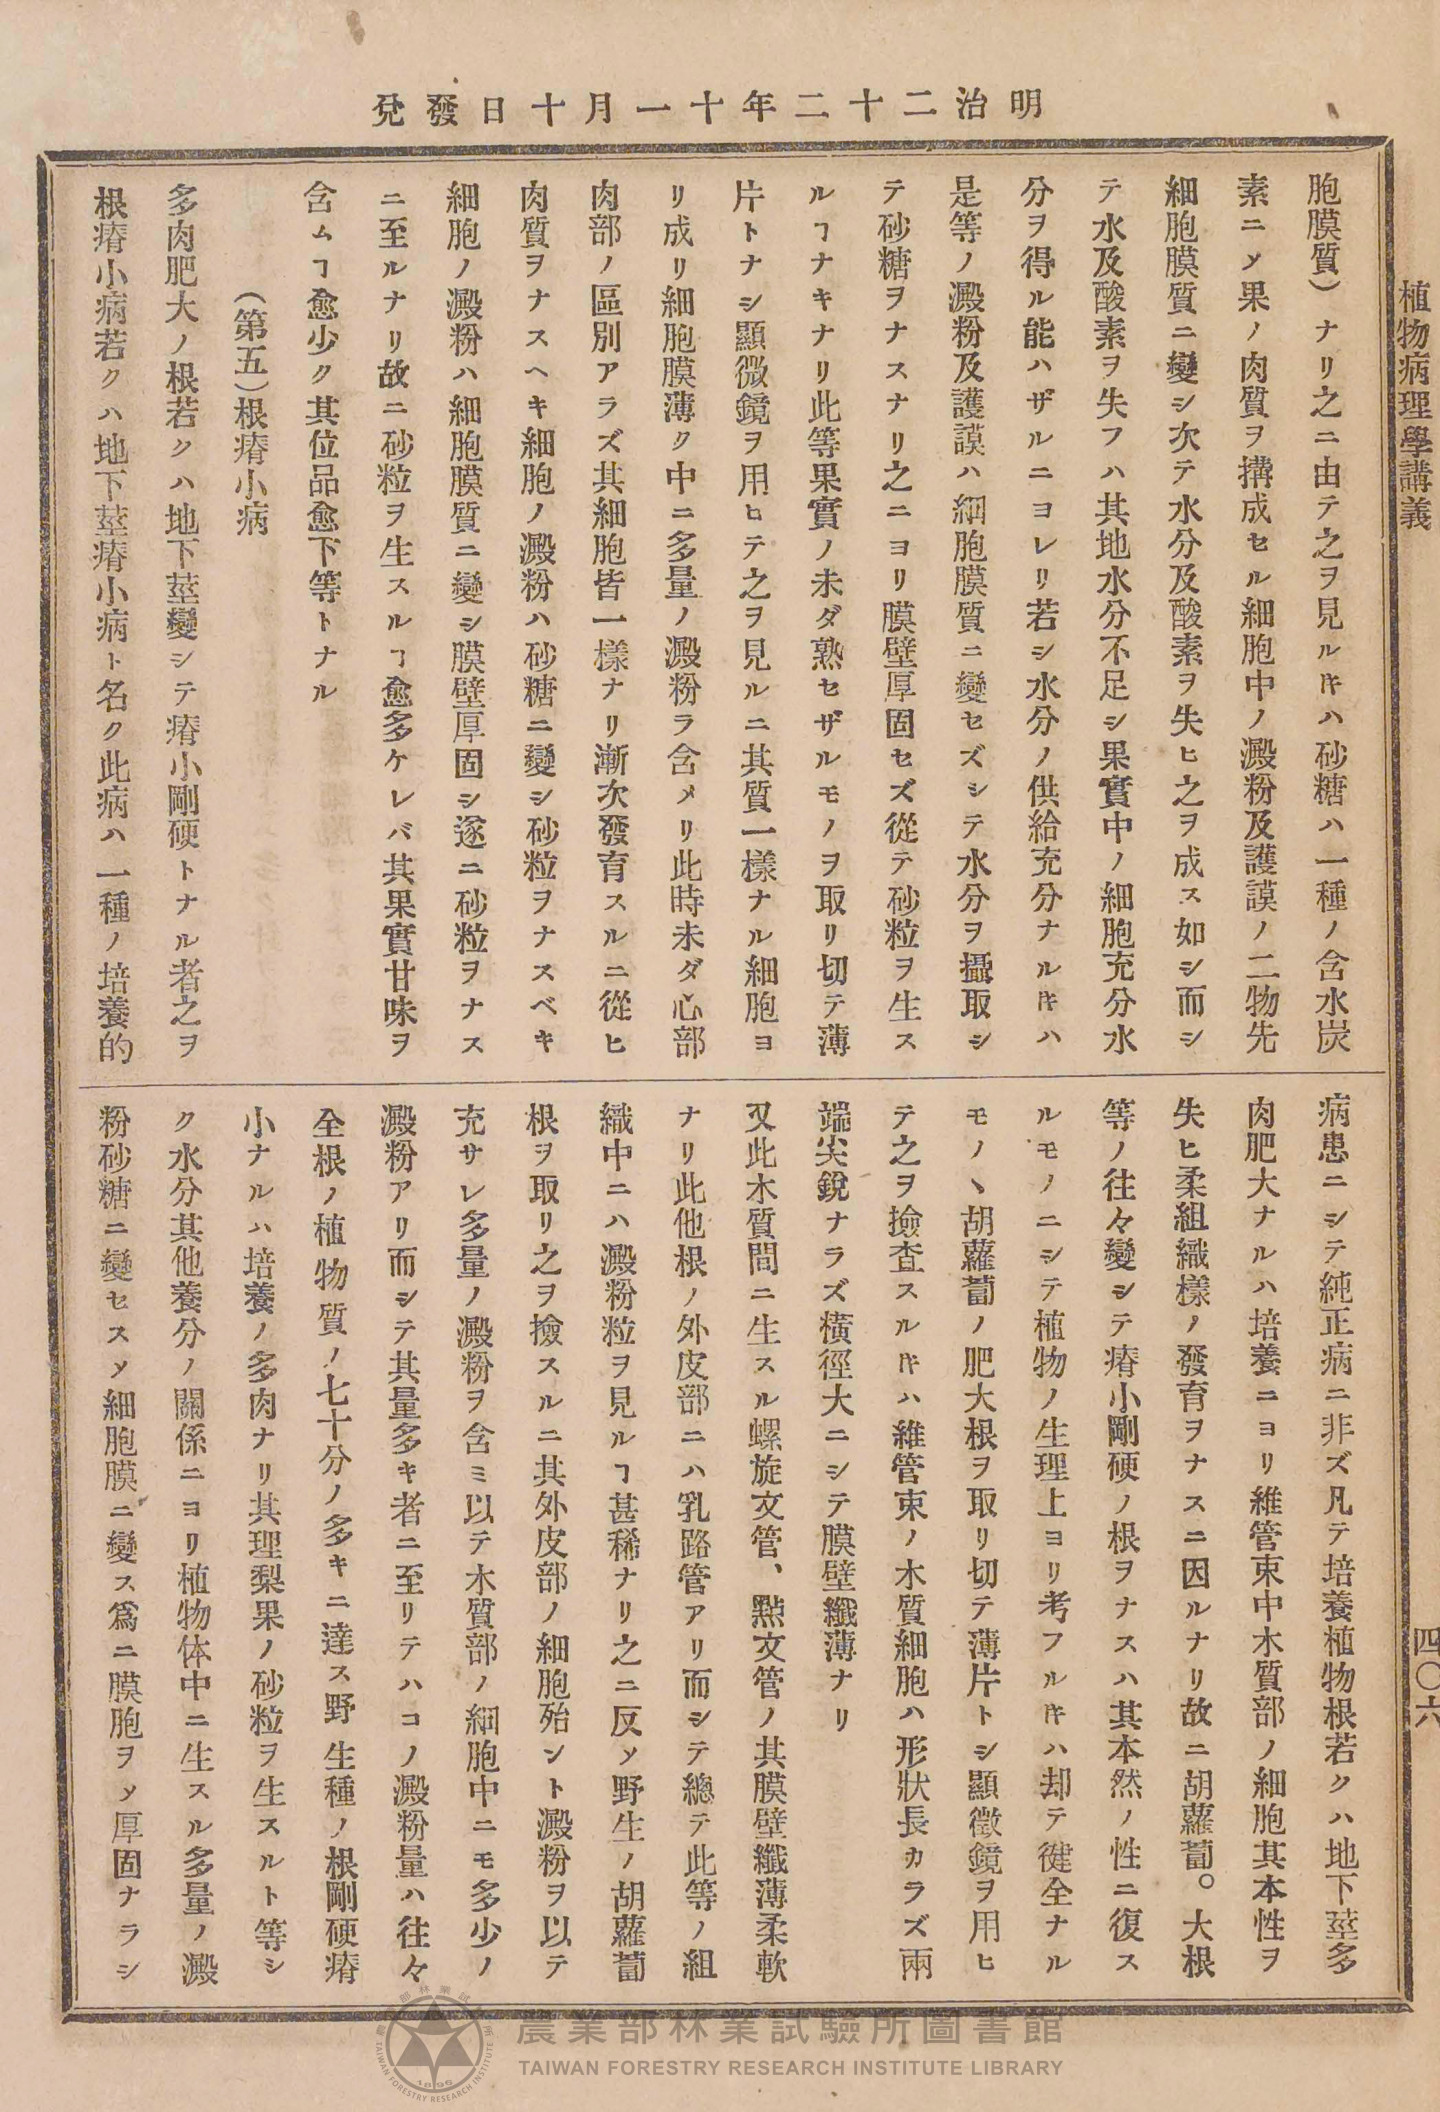 明治二十二年十一月十日發兌
植物病理學講義
四〇六
胞膜質）ナリ之ニ由テ之ヲ見ルキハ砂糖ハ一種ノ含水炭
素ニメ果ノ肉質ヲ搆成セル細胞中ノ澱粉及護謨ノ二物先
細胞膜質ニ變シ次テ水分及酸素ヲ失ヒ之ヲ成ス如シ而シ
テ水及酸素ヲ失フハ其地水分不足シ果實中ノ細胞充分水
分ヲ得ル能ハザルニヨレリ若シ水分ノ供給充分ナルキハ
是等ノ澱粉及護謨ハ細胞膜質ニ變セズシテ水分ヲ攝取シ
テ砂糖ヲナスナリ之ニヨリ膜壁厚固セズ從テ砂粒ヲ生ス
ルヿナキナリ此等果實ノ未ダ熟セザルモノヲ取リ切テ薄
片トナシ顯微鏡ヲ用ヒテ之ヲ見ルニ其質一樣ナル細胞ヨ
リ成リ細胞膜薄ク中ニ多量ノ澱粉ラ含メリ此時未ダ心部
肉部ノ區別アラズ其細胞皆一樣ナリ漸次發育スルニ從ヒ
肉質ヲナスヘキ細胞ノ澱粉ハ砂糖ニ變シ砂粒ヲナスベキ
細胞ノ澱粉ハ細胞膜質ニ變シ膜壁厚固シ遂ニ砂粒ヲナス
ニ至ルナリ故ニ砂粒ヲ生スルヿ愈多ケレバ其果實甘味ヲ
含ムヿ愈少ク其位品愈下等トナル
（第五）根瘠小病
多肉肥大ノ根若クハ地下莖變シテ瘠小剛硬トナル者之ヲ
根瘠小病若クハ地下莖瘠小病ト名ク此病ハ一種ノ培養的
病患ニシテ純正病ニ非ズ凡テ培養植物根若クハ地下莖多
肉肥大ナルハ培養ニヨリ維管束中木質部ノ細胞其本性ヲ
失ヒ柔組織樣ノ發育ヲナスニ因ルナリ故ニ胡蘿蔔。大根
等ノ往々變シテ瘠小剛硬ノ根ヲナスハ其本然ノ性ニ復ス
ルモノニシテ植物ノ生理上ヨリ考フルキハ却テ健全ナル
モノヽ胡蘿蔔ノ肥大根ヲ取リ切テ薄片トシ顯微鏡ヲ用ヒ
テ之ヲ撿查スルキハ維管束ノ木質細胞ハ形狀長カラズ兩
端尖銳ナラズ橫徑大ニシテ膜壁纖薄ナリ
又此木質間ニ生スル螺旋文管、㸃文管ノ其膜壁纖薄柔軟
ナリ此他根ノ外皮部ニハ乳路管アリ而シテ總テ此等ノ組
織中ニハ澱粉粒ヲ見ルヿ甚稀ナリ之ニ反メ野生ノ胡蘿蔔
根ヲ取リ之ヲ撿スルニ其外皮部ノ細胞殆ント澱粉ヲ以テ
充サレ多量ノ澱粉ヲ含ミ以テ木質部ノ細胞中ニモ多少ノ
澱粉アリ而シテ其量多キ者ニ至リテハコノ澱粉量ハ往々
全根ノ植物質ノ七十分ノ多キニ達ス野生種ノ根剛硬瘠
小ナルハ培養ノ多肉ナリ其理梨果ノ砂粒ヲ生スルト等シ
ク水分其他養分ノ關係ニヨリ植物体中ニ生スル多量ノ澱
粉砂糖ニ變セスメ細胞膜ニ變ス爲ニ膜胞ヲメ厚固ナラシ
農業部林業試驗所圖書館
TAIWAN FORESTRY RESEARCH INSTITUTE LIBRARY